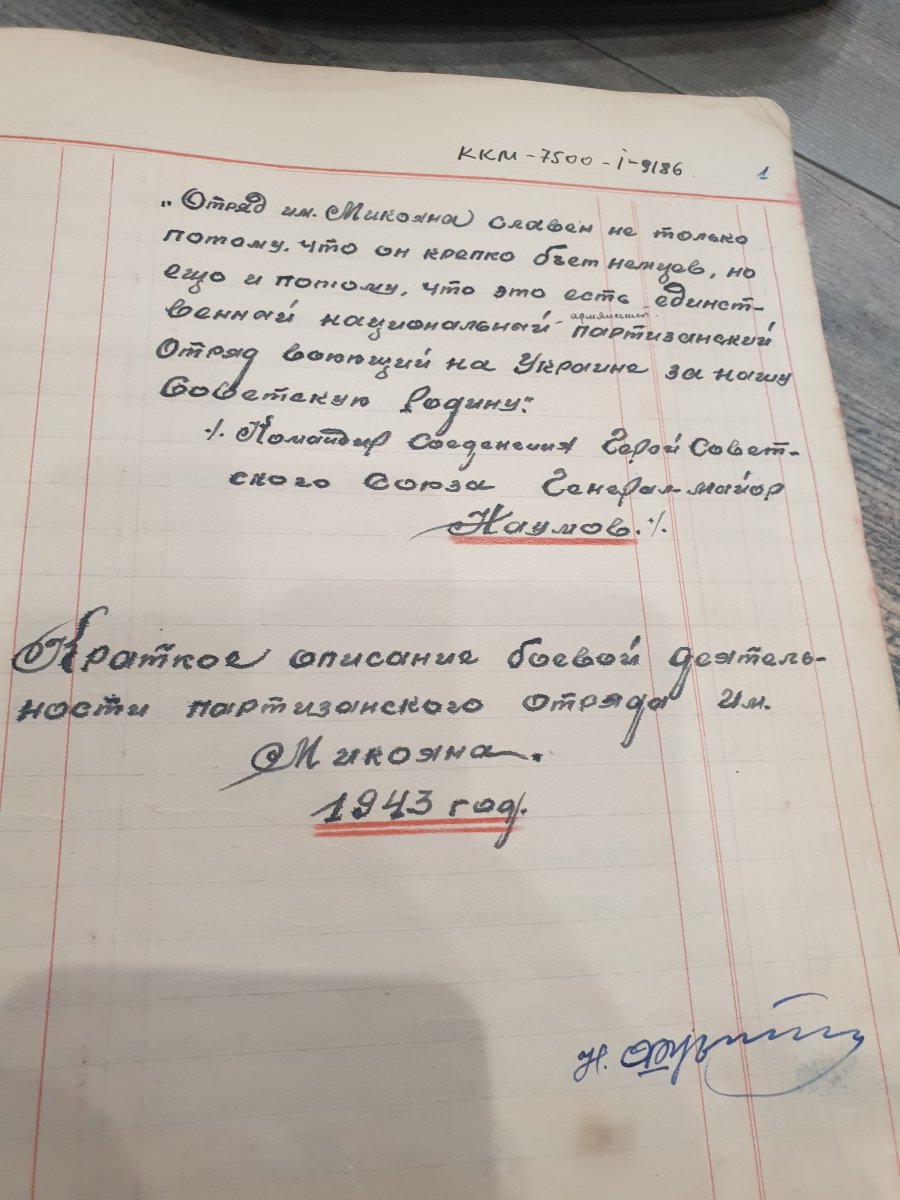 ККМ-7500-i-9186
1
„Отряд им. Микояна славен не только
потому, что он крепко бъет немцев, но
ещо и потому, что это есть единст-
армянский
венный национальный партизанский
Отряд воюющий на Украине за нашу
Советскую Родину."
·/. Командир Соеденения Герой Совет-
ского Союза Генерал-майор
Наумов. ·/.
Краткое описание боевой деятель-
ности партизанского отряда им.
Микояна.
1943 год.
Н.